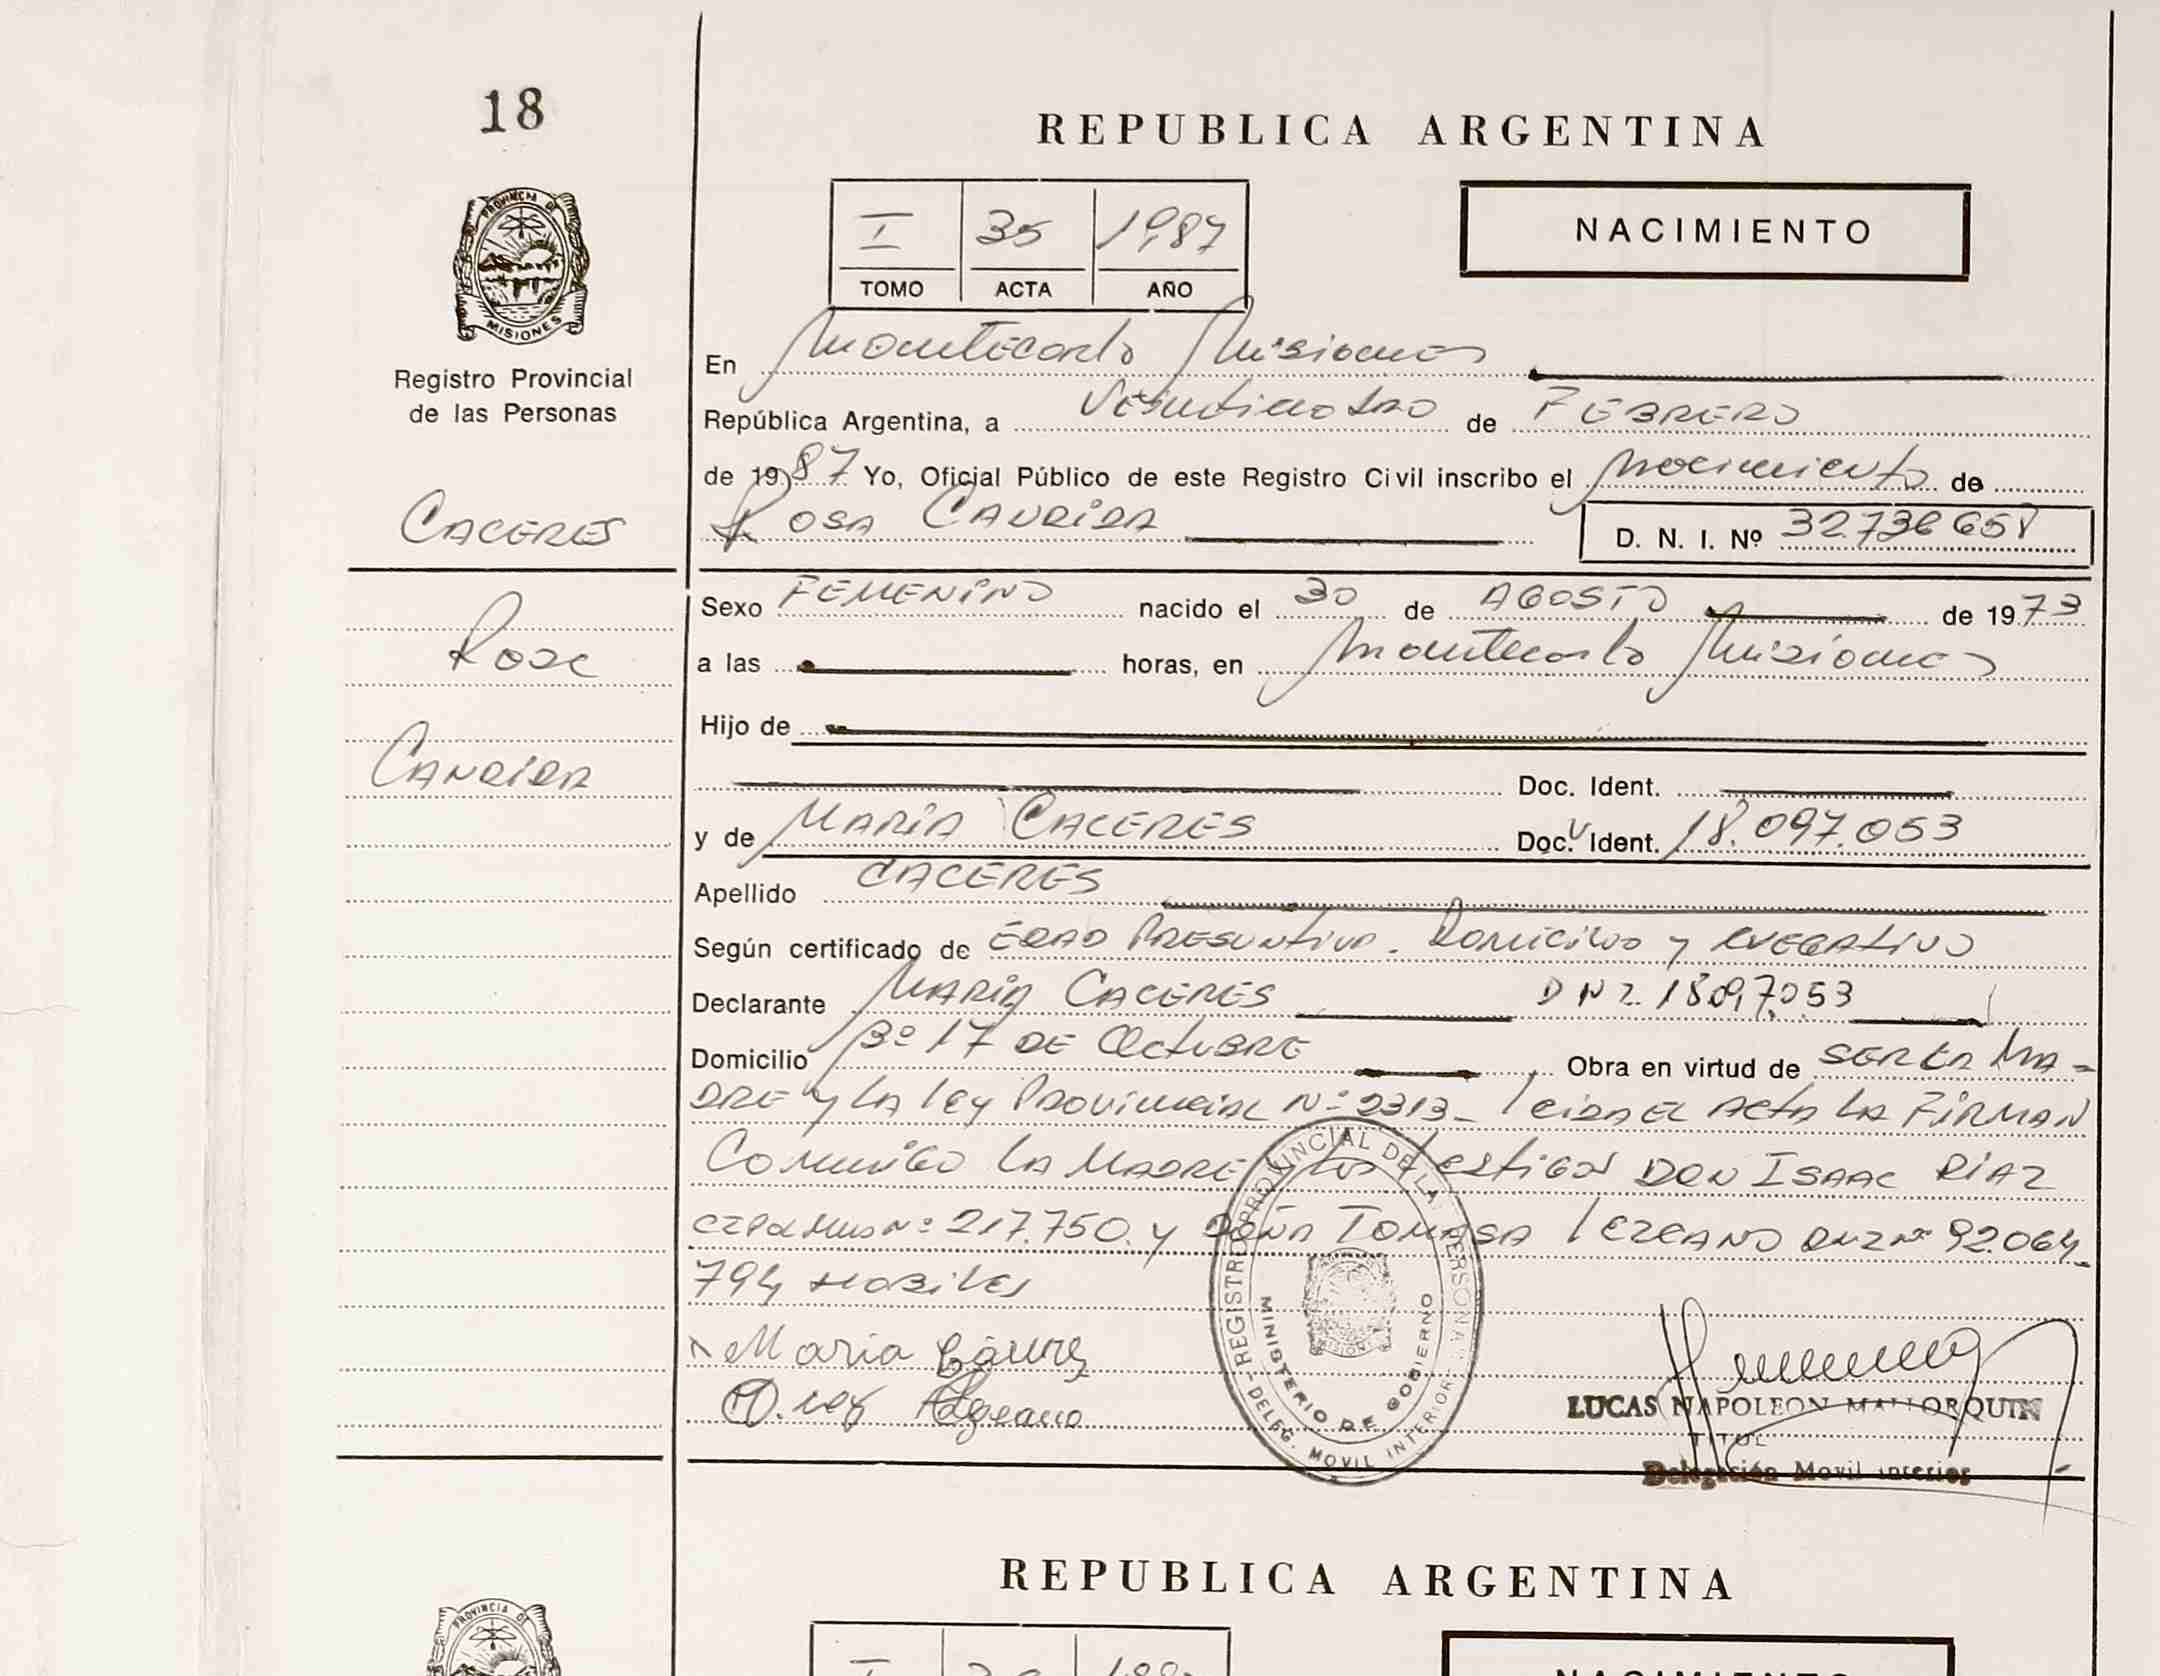 18
REPUBLICA ARGENTINA
I 35 1987
TOMO ACTA AÑO
NACIMIENTO
PROVINCIA DE
MISIONES
Registro Provincial
de las Personas
En Montecarlo Misiones
República Argentina, a Veinticuatro de FEBRERO
de 1987 Yo, Oficial Público de este Registro Civil inscribo el Nacimiento de
CACERES
ROSA CANDIDA D. N. I. Nº 32.736658
Sexo FEMENINO nacido el 30 de AGOSTO de 1973
Rosa
a las horas, en Montecarlo Misiones
Hijo de
CANDIDA
Doc. Ident.
y de MARIA CACERES Doc. Ident. 18.097.053
Apellido CACERES
Según certificado de EDAD PRESUNTIVA. Domicilio y NEGATIVO
Declarante MARIA CACERES DNI. 18.097.053
Domicilio Bº 17 DE Octubre Obra en virtud de SER LA MA=
DRE y LA Ley Provincial Nº 2313_ Leida EL Acta LA FIRMAN
Conmigo LA MADRE y los testigos DON ISAAC DIAZ
Nº 217.750. y DOÑA TOMASA LEZCANO DNI Nº 92.064_
794 HABILES
Maria Cáceres
REGISTRO PROVINCIAL DE LAS PERSONAS
MINISTERIO DE GOBIERNO
DELEG. MOVIL INTERIOR
LUCAS NAPOLEON MALLORQUIN
TITUL
Delegación Movil interior
REPUBLICA ARGENTINA
PROVINCIA DE
I
NACIMIENTO